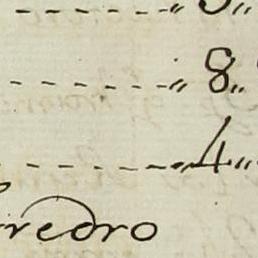 --------„ 5„
--------„ 8„
--------„ 4„
redro